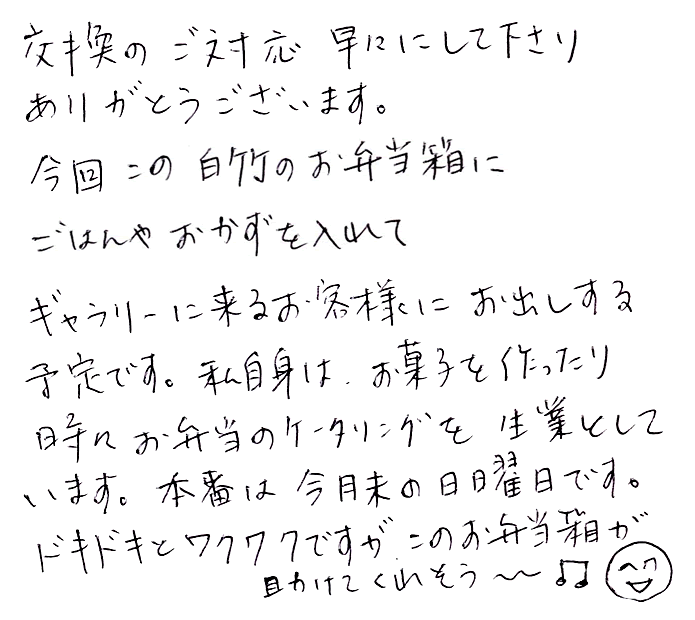 交換のご対応 早々にして下さり
ありがとうございます。
今回この白竹のお弁当箱に
ごはんやおかずを入れて
ギャラリーに来るお客様にお出しする
予定です。私自身は、お菓子を作ったり
時にお弁当のケータリングを生業として
います。本番は今月末の日曜日です。
ドキドキとワクワクですが、このお弁当箱が
助けてくれそう〜〜♫